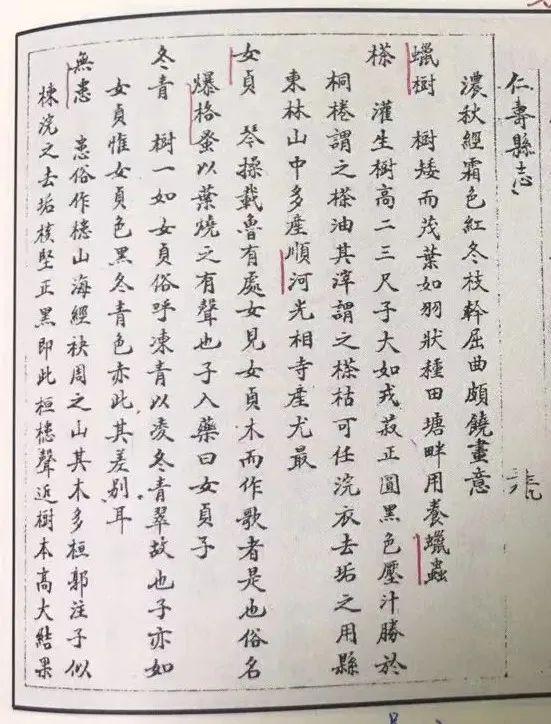 仁壽縣志
濃秋經霜色紅冬枝幹屈曲頗饒畫意
蠟樹 樹矮而茂葉如羽狀種田塘畔用養蠟蟲
㯽 灌生樹高二三尺子大如戎菽正圓黑色壓汁勝於
桐棬謂之㯽油其滓謂之㯽枯可任浣衣去垢之用縣
東林山中多產順河光相寺產尤最
女貞 琴操載魯有處女見女貞木而作歌者是也俗名
爆格蚤以葉燒之有聲也子入藥曰女貞子
冬青 樹一如女貞俗呼凍青以凌冬青翠故也子亦如
女貞惟女貞色黑冬青色赤此其差別耳
無患 患俗作槵山海經袟周之山其木多桓郭注子似
楝浣之去垢核堅正黑即此桓槵聲近樹本高大結果